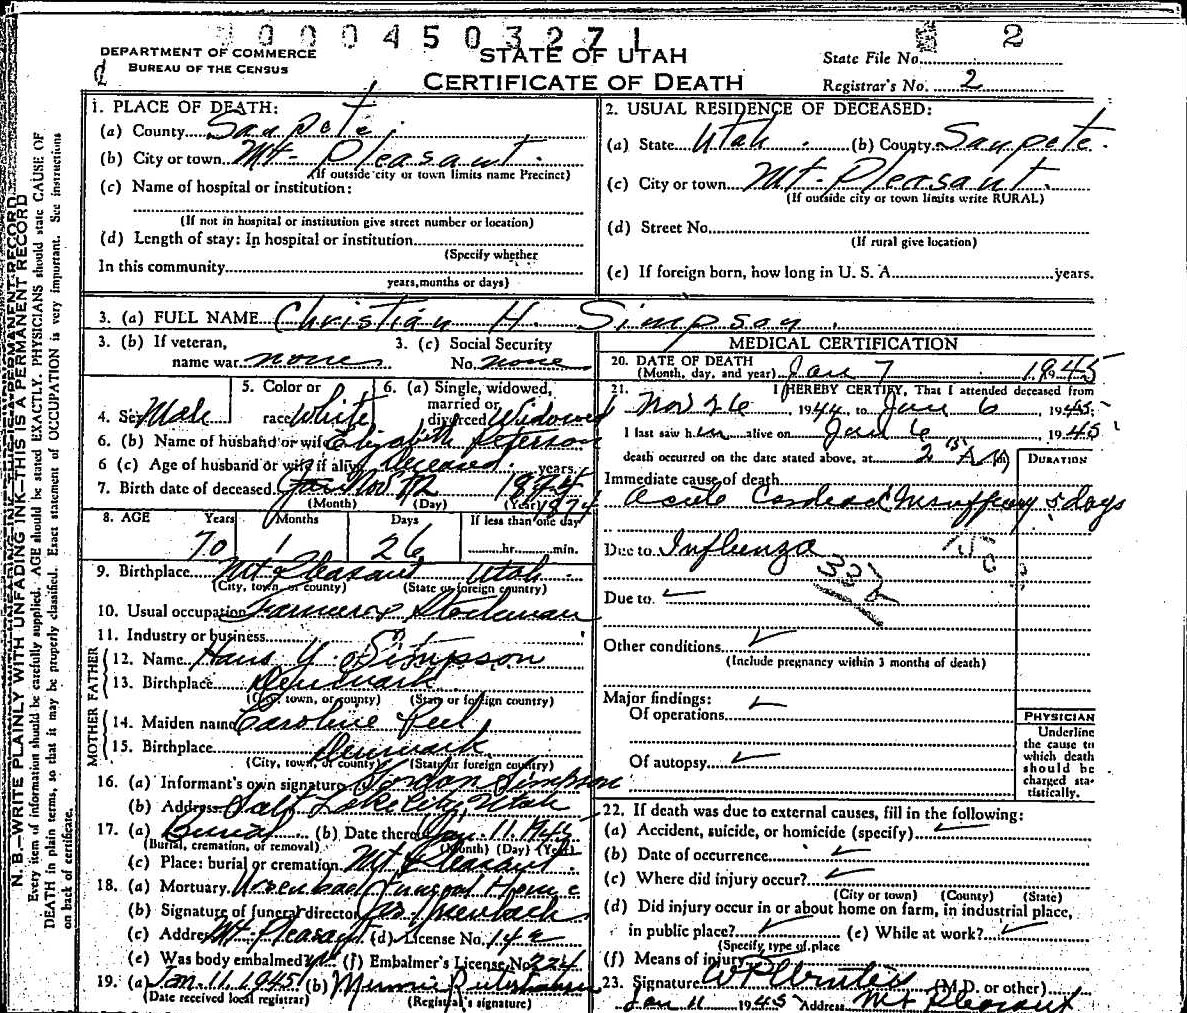 0 0 0 4 5 0 3 2 7 1 2
DEPARTMENT OF COMMERCE
BUREAU OF THE CENSUS
STATE OF UTAH
CERTIFICATE OF DEATH
State File No.
Registrar's No. 2
1. PLACE OF DEATH:
(a) County Sanpete.
(b) City or town Mt. Pleasant.
(If outside city or town limits name Precinct)
(c) Name of hospital or institution:
(If not in hospital or institution give street number or location)
(d) Length of stay: In hospital or institution
(Specify whether
In this community
years, months or days)
2. USUAL RESIDENCE OF DECEASED:
(a) State Utah. (b) County Sanpete.
(c) City or town Mt. Pleasant.
(If outside city or town limits write RURAL)
(d) Street No.
(If rural give location)
(e) If foreign born, how long in U. S. A. years.
3. (a) FULL NAME Christian H. Simpson.
3. (b) If veteran,
name war none
3. (c) Social Security
No. none
4. Sex Male
5. Color or
race White
6. (a) Single, widowed,
married or
divorced Widowed
6. (b) Name of husband or wife Elizabeth Peterson
6 (c) Age of husband or wife if alive deceased. years.
7. Birth date of deceased Nov 12 1874
(Month) (Day) (Year) 1874
8. AGE Years Months Days If less than one day
70 1 26 hr. min.
9. Birthplace Mt Pleasant Utah
(City, town, or county) (State or foreign country)
10. Usual occupation Farmer & Stockman
11. Industry or business
FATHER
12. Name Hans Y. Simpson
13. Birthplace Denmark
(City, town, or county) (State or foreign country)
MOTHER
14. Maiden name Caroline
15. Birthplace Denmark
(City, town, or county) (State or foreign country)
16. (a) Informant's own signature Jordan Simpson
(b) Address Salt Lake City, Utah
17. (a) Burial (b) Date thereof Jan. 11. 1945
(Burial, cremation, or removal) (Month) (Day) (Year)
(c) Place: burial or cremation Mt Pleasant.
18. (a) Mortuary Ursenbach Funeral Home
(b) Signature of funeral director Ursenbach
(c) Address Mt. Pleasant (d) License No. 142
(e) Was body embalmed? (f) Embalmer's License No. 224
19. (a) Jan. 11. 1945 (b) Minnie
(Date received local registrar) (Registrar's signature)
MEDICAL CERTIFICATION
20. DATE OF DEATH
(Month, day, and year) Jan 7 1945
21. I HEREBY CERTIFY, That I attended deceased from
Nov 26, 1944, to Jan 6 1945;
I last saw him alive on Jan 6, 1945
death occurred on the date stated above, at 2 15 A M
DURATION
Immediate cause of death
Acute Cardiac Insufficiency 5 days
Due to Influenza
Due to
Other conditions
(Include pregnancy within 3 months of death)
Major findings:
Of operations
Of autopsy
PHYSICIAN
Underline
the cause to
which death
should be
charged sta-
tistically.
22. If death was due to external causes, fill in the following:
(a) Accident, suicide, or homicide (specify)
(b) Date of occurrence
(c) Where did injury occur?
(City or town) (County) (State)
(d) Did injury occur in or about home on farm, in industrial place,
in public place? (e) While at work?
(Specify type of place
(f) Means of injury
23. Signature (M.D. or other)
Jan 11 1945 Address Mt Pleasant
N. B.—WRITE PLAINLY WITH UNFADING INK—THIS IS A PERMANENT RECORD
Every item of information should be carefully supplied. AGE should be stated EXACTLY. PHYSICIANS should state CAUSE OF
DEATH in plain terms, so that it may be properly classified. Exact statement of OCCUPATION is very important. See instructions
on back of certificate.